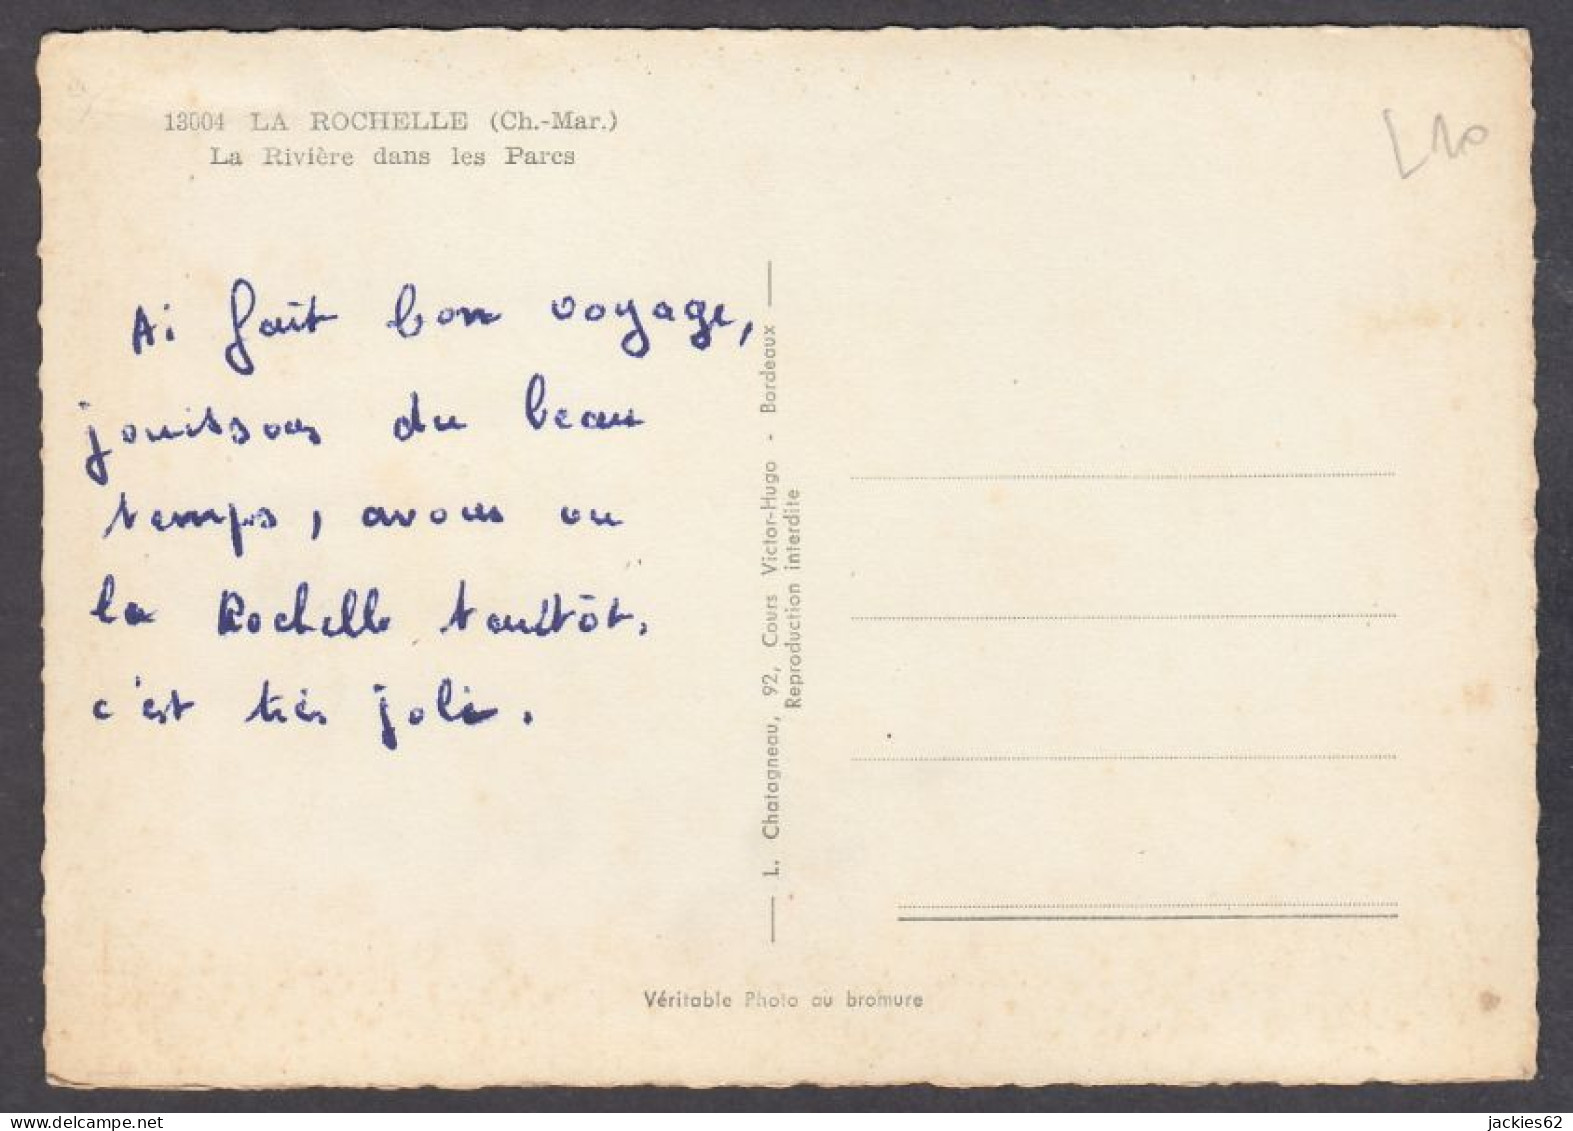 13004 LA ROCHELLE (Ch.-Mar.)
La Rivière dans les Parcs
L10
Ai fait bon voyage,
jouissons du beau
temps, avons vu
la Rochelle tantôt,
c'est très joli.
L. Chatagneau, 92, Cours Victor-Hugo - Bordeaux
Reproduction interdite
Véritable Photo au bromure
jackies62